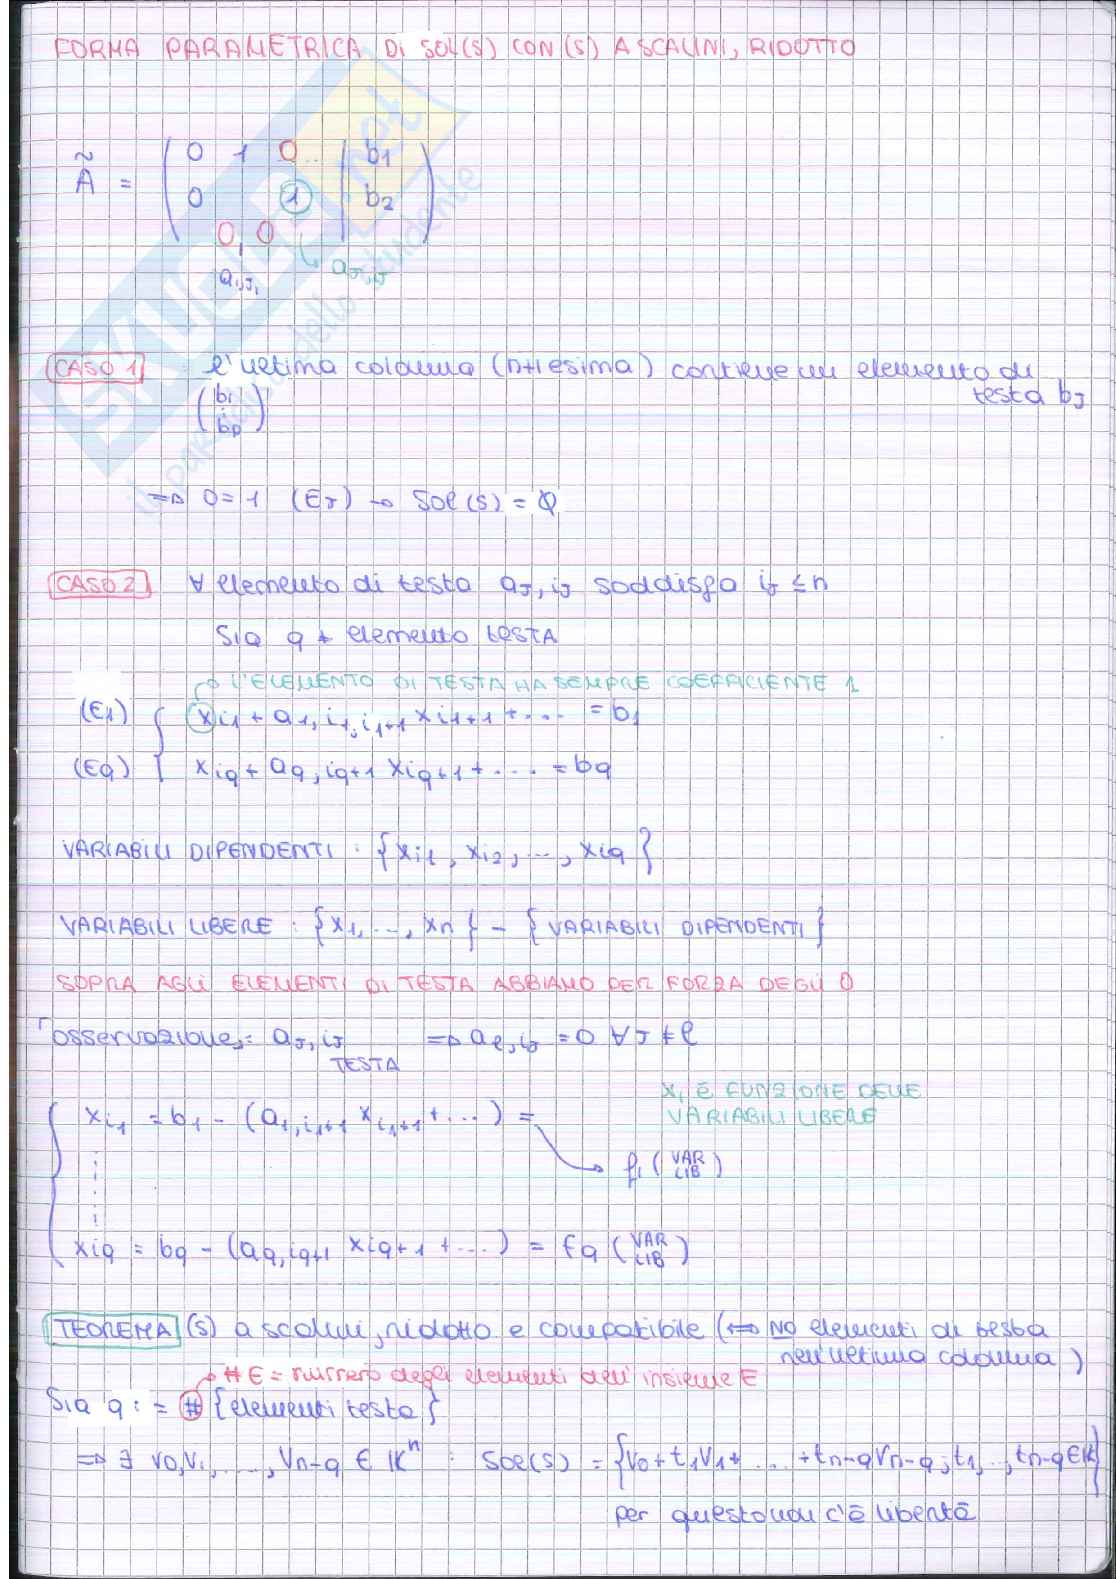 FORMA PARAMETRICA DI SOL(S) CON (S) A SCALINI, RIDOTTO
Ã = ( 0 1 0.. | b1 )
0 1 | b2
0, 0
a1,J1 aJ,iJ
CASO 1 : l'ultima colonna (n+1 esima) contiene un elemento di
testa bJ
(b1 : bp)
⇒ 0=1 (EJ) → Sol(S) = ∅
CASO 2 ∀ elemento di testa aJ,iJ soddisfa iJ ≤ n
Sia q # elemento TESTA
L'ELEMENTO DI TESTA HA SEMPRE COEFFICIENTE 1
(E1) { xi1 + a1,i1,i1+1 xi1+1 + .... = b1
(Eq) xiq + aq,iq+1 xiq+1 + .... = bq
VARIABILI DIPENDENTI : {xi1, xi2, ..., xiq}
VARIABILI LIBERE : {x1, ..., xn} - {VARIABILI DIPENDENTI}
SOPRA AGLI ELEMENTI DI TESTA ABBIAMO PER FORZA DEGLI 0
osservazione: aJ,iJ ⇒ aℓ,iJ = 0 ∀ J ≠ ℓ
TESTA
x1 È FUNZIONE DELLE
VARIABILI LIBERE
{ xi1 = b1 - (a1,i1+1 xi1+1 + ...) =
f1 (VAR LIB)
xiq = bq - (aq,iq+1 xiq+1 + ...) = fq (VAR LIB)
TEOREMA (S) a scalini, ridotto e compatibile (⇔ NO elementi di testa
nell'ultima colonna )
# E = numero degli elementi dell'insieme E
Sia q : = # {elementi testa}
⇒ ∃ v0,v1, ...., vn-q ∈ K^n : Sol(S) = {v0 + t1v1 + ... + tn-qvn-q ; t1, .., tn-q ∈ K}
per questo non c'è libertà
SKUOLA.net
il portale dello studente